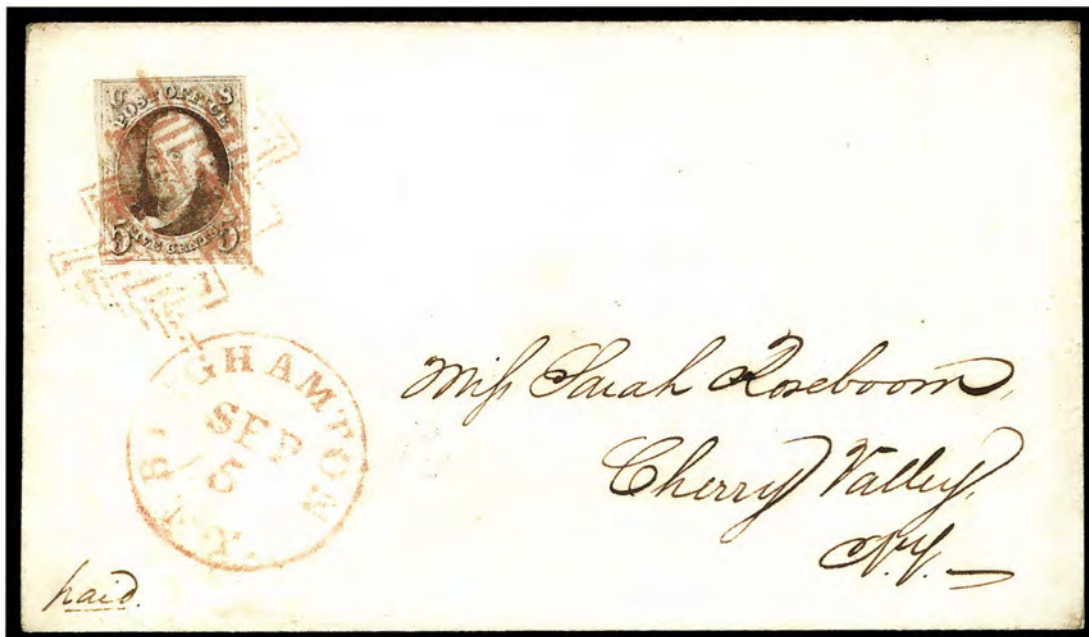 U S
POST OFFICE
FIVE CENTS
5 5
BINGHAMTON
N.Y.
SEP
5
Miss Sarah Roseboom,
Cherry Valley,
N.Y.
paid.